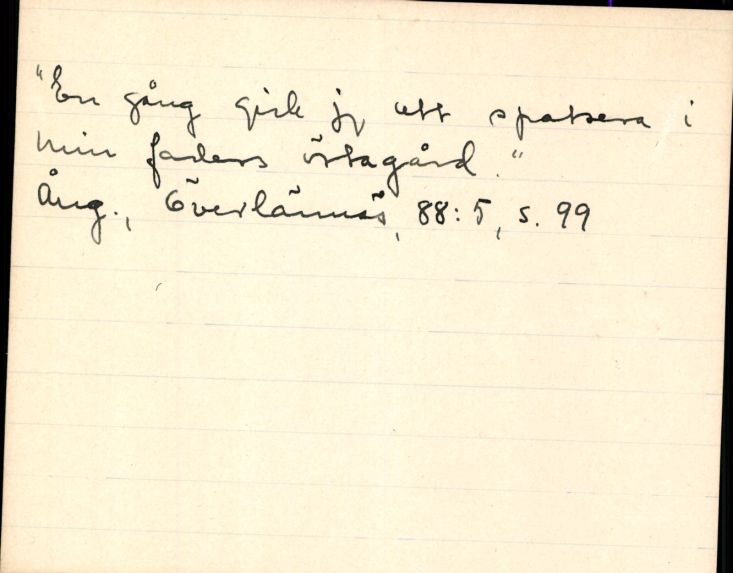 "En gång gick jg att spatsera i
min faders örtagård."
Ång., Överlännäs, 88:5, s. 99